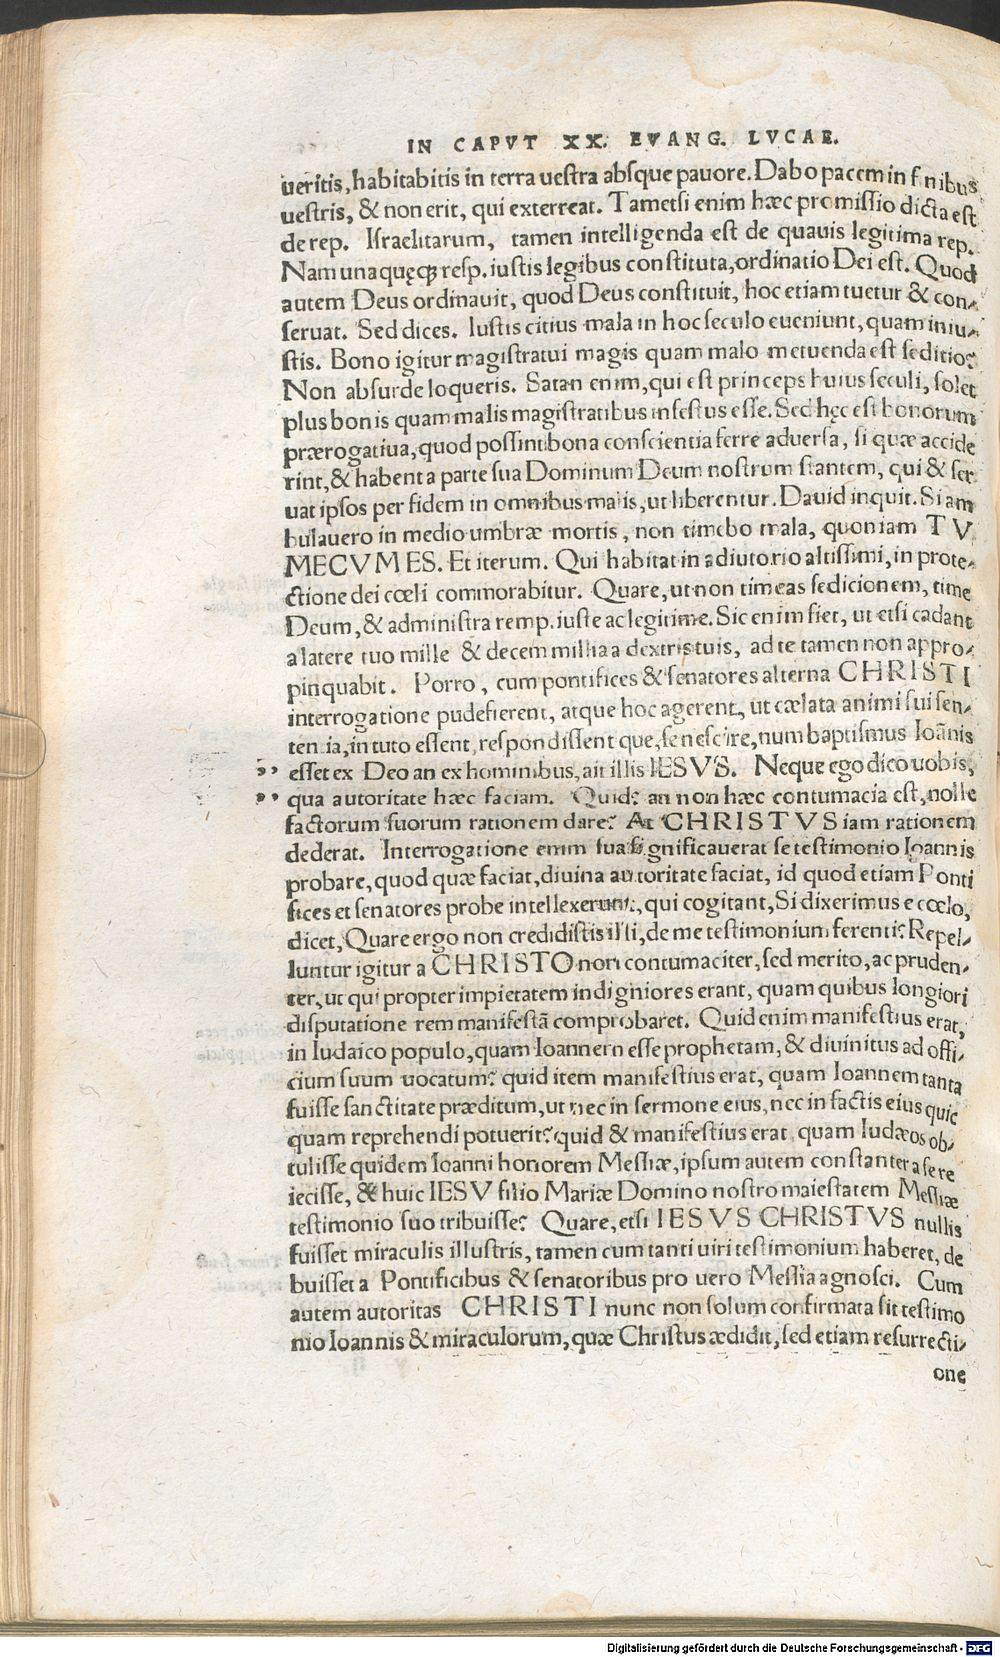 IN CAPVT XX. EVANG. LVCAE.
ueritis, habitabitis in terra uestra absque pauore. Dabo pacem in finibus
uestris, & non erit, qui exterreat. Tametsi enim hæc promissio dicta est
de rep. Israelitarum, tamen intelligenda est de quauis legitima rep.
Nam unaquęcꝫ resp. iustis legibus constituta, ordinatio Dei est. Quod
autem Deus ordinauit, quod Deus constituit, hoc etiam tuetur & con-
seruat. Sed dices. Iustis citius mala in hoc seculo eueniunt, quam iniu-
stis. Bono igitur magistratui magis quam malo metuenda est seditio?
Non absurde loqueris. Satan enim, qui est princeps huius seculi, solet
plus bonis quam malis magistratibus infestus esse. Sed hęc est bonorum
prærogatiua, quod possint bona conscientia ferre aduersa, si quæ accide
rint, & habent a parte sua Dominum Deum nostrum stantem, qui & ser
uat ipsos per fidem in omnibus malis, ut liberentur. Dauid inquit. Si am
bulauero in medio umbræ mortis, non timebo mala, quoniam TV
MECVM ES. Et iterum. Qui habitat in adiutorio altissimi, in prote-
ctione dei cœli commorabitur. Quare, ut non timeas sedicionem, time
Deum, & administra remp. iuste ac legitime. Sic enim fiet, ut etsi cadant
a latere tuo mille & decem millia a dextris tuis, ad te tamen non appro-
pinquabit. Porro, cum pontifices & senatores alterna CHRISTI
interrogatione pudefierent, atque hoc agerent, ut cælata animi sui sen-
tentia, in tuto essent, respondissentque, se nescire, num baptismus Ioānis
,, esset ex Deo an ex hominibus, ait illis IESVS. Neque ego dico uobis,
,, qua autoritate hæc faciam. Quid? an non hæc contumacia est, nolle
factorum suorum rationem dare? At CHRISTVS iam rationem
dederat. Interrogatione enim sua significauerat se testimonio Ioannis
probare, quod quæ faciat, diuina autoritate faciat, id quod etiam Ponti
fices et senatores probe intellexerunt, qui cogitant, Si dixerimus e cœlo,
dicet, Quare ergo non credidistis illi, de me testimonium ferenti? Repel-
luntur igitur a CHRISTO non contumaciter, sed merito, ac pruden-
ter, ut qui propter impietatem indigniores erant, quam quibus longiori
disputatione rem manifestā comprobaret. Quid enim manifestius erat,
in Iudaico populo, quam Ioannem esse prophetam, & diuinitus ad offi-
cium suum uocatum? quid item manifestius erat, quam Ioannem tanta
fuisse sanctitate præditum, ut nec in sermone eius, nec in factis eius quic
quam reprehendi potuerit? quid & manifestius erat quam Iudæos ob-
tulisse quidem Ioanni honorem Messiæ, ipsum autem constanter a se re
iecisse, & huic IESV filio Mariæ Domino nostro maiestatem Messiæ
testimonio suo tribuisse? Quare, etsi IESVS CHRISTVS nullis
fuisset miraculis illustris, tamen cum tanti uiri testimonium haberet, de
buisset a Pontificibus & senatoribus pro uero Messia agnosci. Cum
autem autoritas CHRISTI nunc non solum confirmata sit testimo
nio Ioannis & miraculorum, quæ Christus ædidit, sed etiam resurrecti-
one
Digitalisierung gefördert durch die Deutsche Forschungsgemeinschaft - DFG